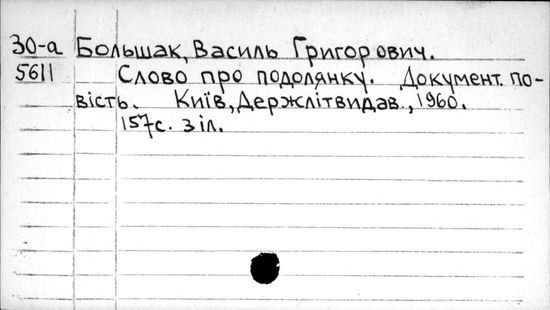 30-а Большак, Василь Григорович.
5611 Слово про подолянку. Документ. по-
вість. Київ, Держлітвидав., 1960.
157с. з іл.